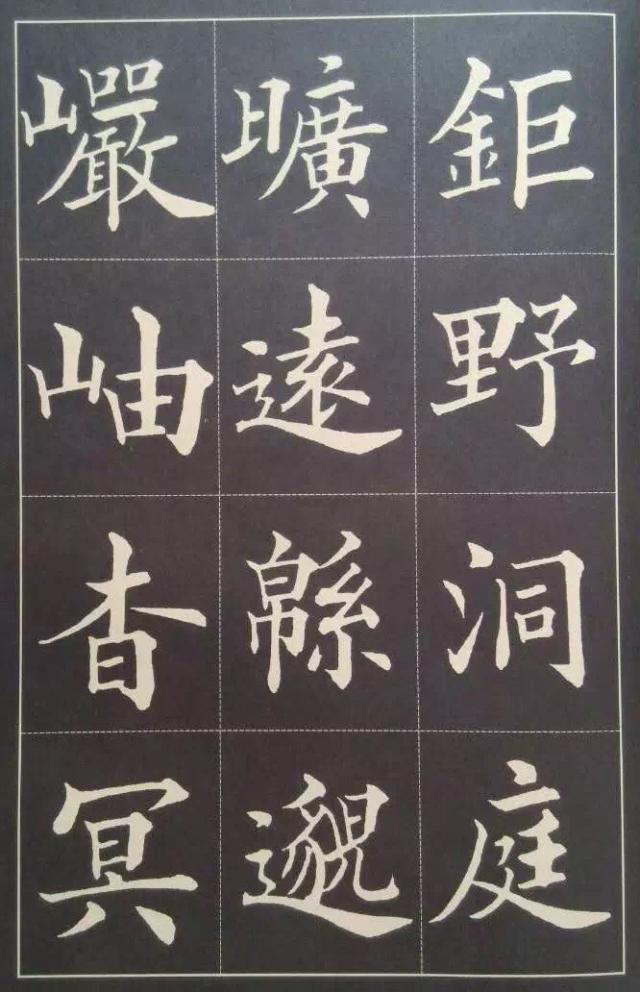 鉅野洞庭
曠遠緜邈
巖岫杳冥